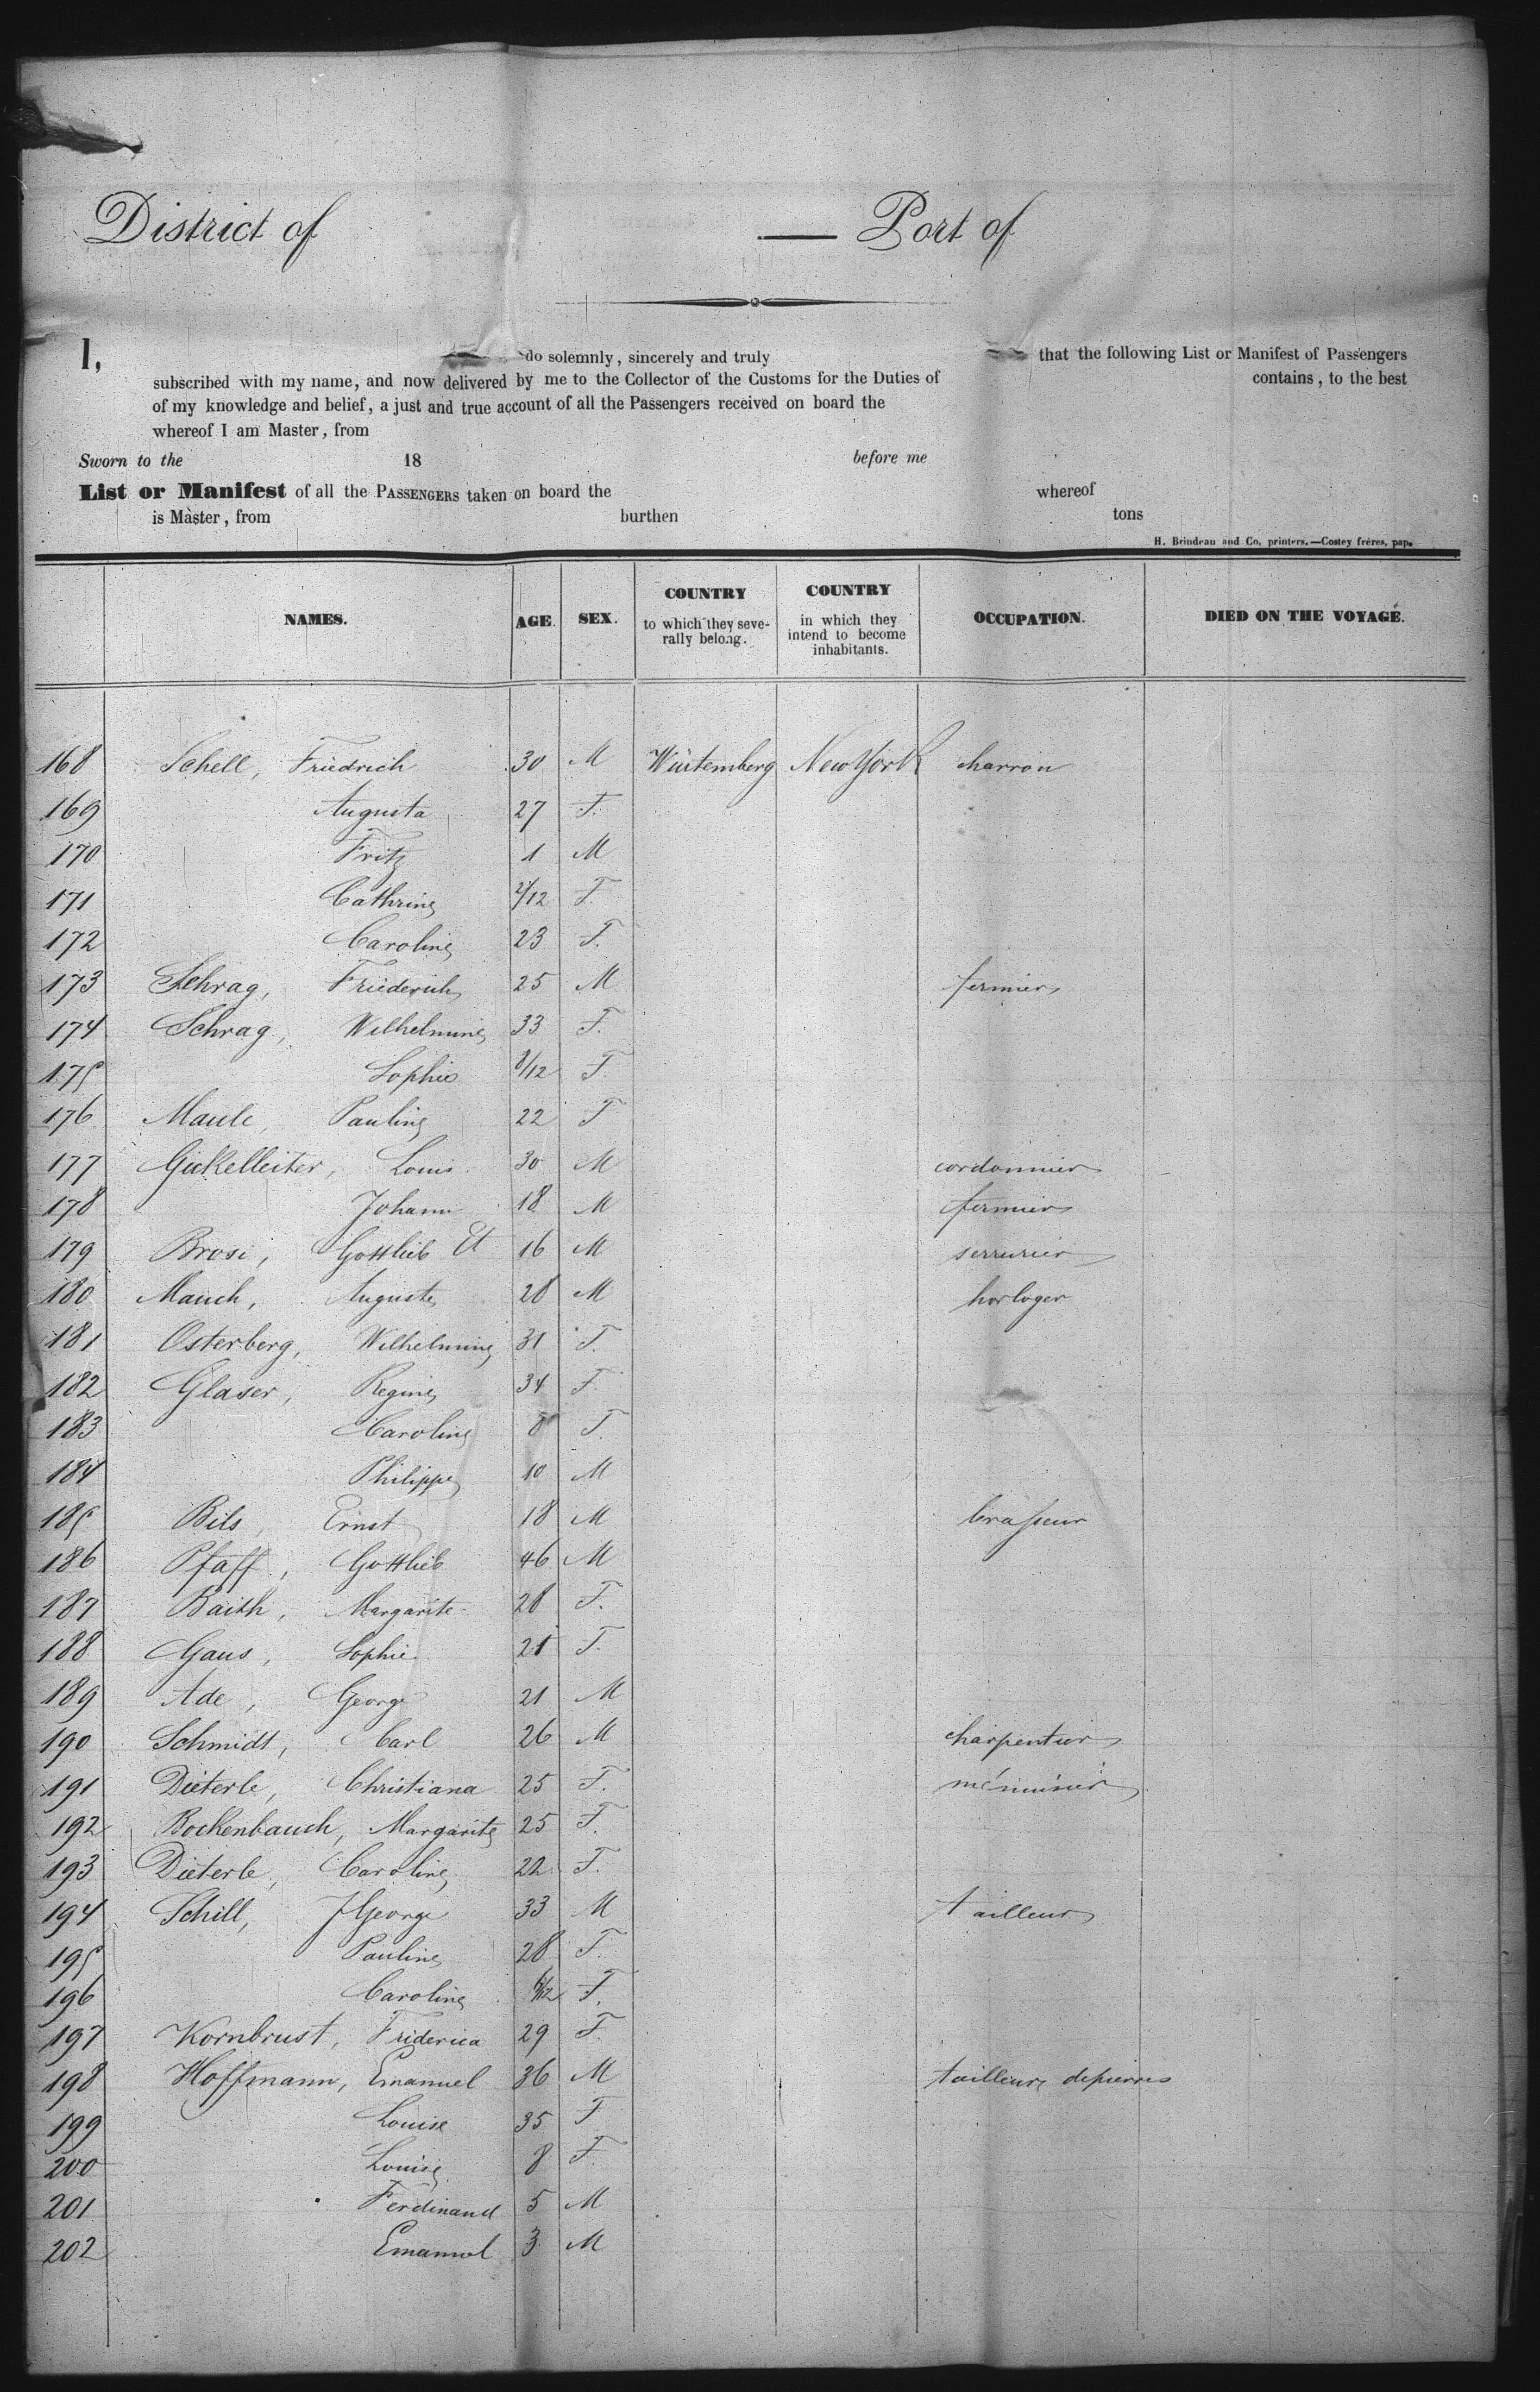 District of — Port of
I, do solemnly, sincerely and truly that the following List or Manifest of Passengers
subscribed with my name, and now delivered by me to the Collector of the Customs for the Duties of contains, to the best
of my knowledge and belief, a just and true account of all the Passengers received on board the
whereof I am Master, from
Sworn to the 18 before me
List or Manifest of all the PASSENGERS taken on board the whereof
is Master, from burthen tons
H. Brindeau and Co, printers.—Costey frères, pap.
NAMES. AGE. SEX. COUNTRY to which they severally belong. COUNTRY in which they intend to become inhabitants. OCCUPATION. DIED ON THE VOYAGE.
168 Schell, Friedrich 30 M Würtemberg New York charron
169 Augusta 27 F.
170 Fritz 1 M
171 Cathrine /12 F.
172 Caroline 23 F.
173 Schrag, Friederich 25 M fermier
174 Schrag, Wilhelmine 33 F.
175 Sophie 8/12 F.
176 Maule, Pauline 22 F
177 Gickelleiter, Louis 30 M cordonnier
178 Johann 18 M fermier
179 Brosi, Gottlieb Et 16 M serrurier
180 Mauch, Auguste 28 M horloger
181 Osterberg, Wilhelmine 31 F.
182 Glaser, Regine 34 F.
183 Caroline 8 F.
184 Philippe 10 M
185 Bils, Ernst 18 M brasseur
186 Pfaff, Gottlieb 46 M
187 Baith, Margarite 28 F.
188 Gaus, Sophie 21 F.
189 Ade, George 21 M
190 Schmidt, Carl 26 M charpentier
191 Dieterle, Christiana 25 F. ménuisier
192 Bockenbauch, Margarite 25 F.
193 Dieterle, Caroline 22 F.
194 Schill, J George 33 M tailleur
195 Pauline 28 F.
196 Caroline /12 F.
197 Kornbrust, Friderica 29 F.
198 Hoffmann, Emanuel 36 M tailleur depierres
199 Louise 35 F
200 Louise 8 F.
201 Ferdinand 5 M
202 Emanuel 3 M